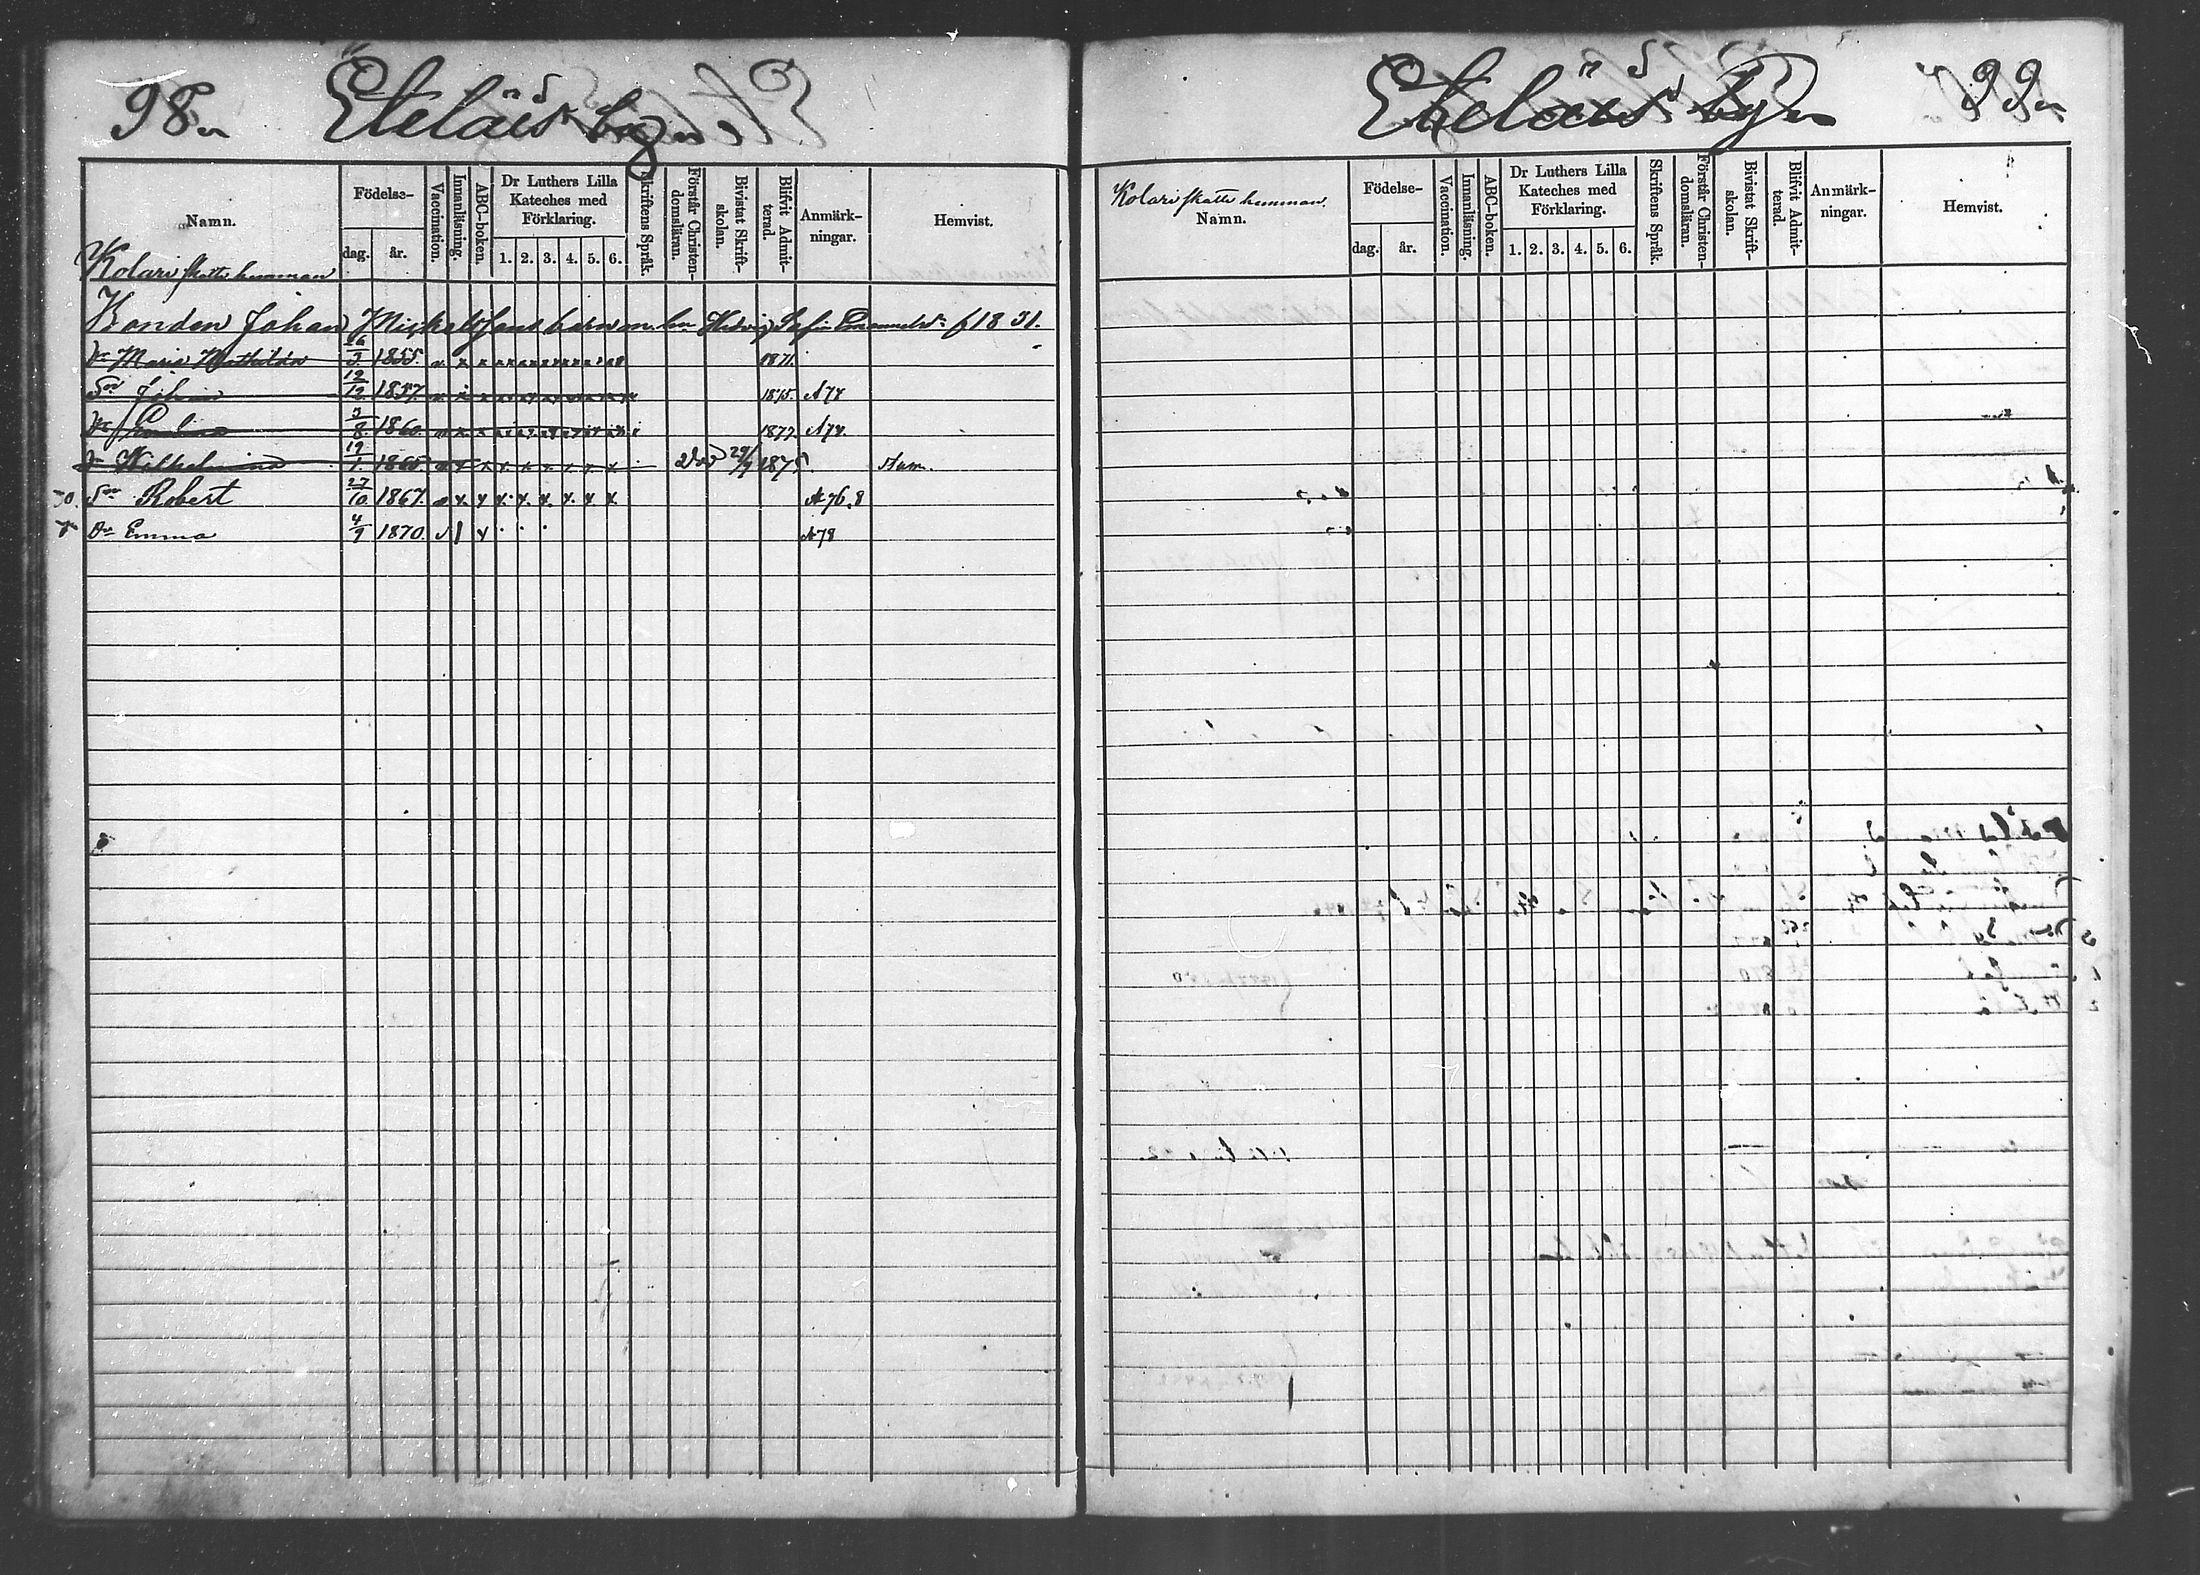 98.
Eteläis by.
Namn.
Födelse-
dag.
år.
Vaccination.
Innanläsning.
ABC-boken.
Dr Luthers Lilla
Kateches med
Förklaring.
1. 2. 3. 4. 5. 6.
Skriftens Språk.
Förstår Christen-
domsläran.
Bivistat Skrift-
skolan.
Blifvit Admit-
terad.
Anmärk-
ningar.
Hemvist.
Kolari skatte hemman
Bonden Johan Michelsson's barn m. hu Hedvig Sofia Emanuelsdr f 1831.
Dr Maria Mathilda 26/3 1855. 1871.
Son Johan 12/12 1857 1875. A74
Dr 3/8 1860 1877. A74.
Dr Wilhelmina 19/1 1865 Död 29/9 1875. Hem.
Son Robert 27/10 1867. A76.8
Dr Emma 4/9 1870. A78
Eteläis by
99
Kolari skatte hemman.
Namn.
Födelse-
dag.
år.
Vaccination.
Innanläsning.
ABC-boken.
Dr Luthers Lilla
Kateches med
Förklaring.
1. 2. 3. 4. 5. 6.
Skriftens Språk.
Förstår Christen-
domsläran.
Bivistat Skrift-
skolan.
Blifvit Admit-
terad.
Anmärk-
ningar.
Hemvist.